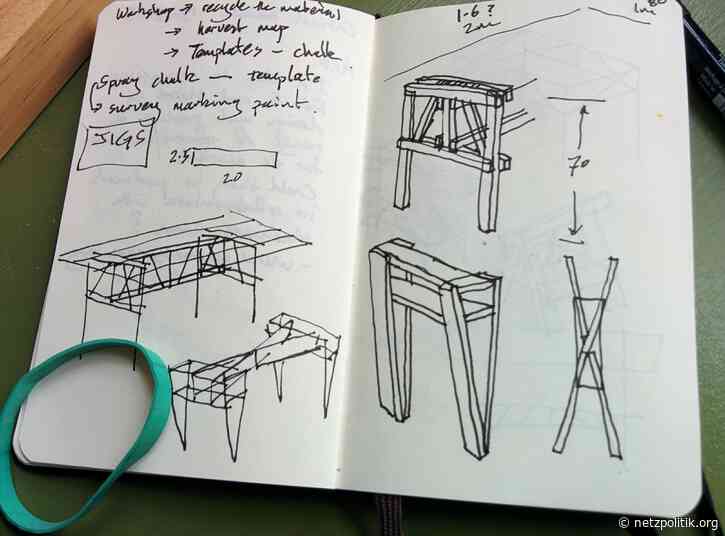 Workshop → recycle the material
→ harvest map
→ Templates – chalk
Spray chalk — template
survey marking paint.
JIGS
2.5
20
1.6?
2m
70
© netzpolitik.org